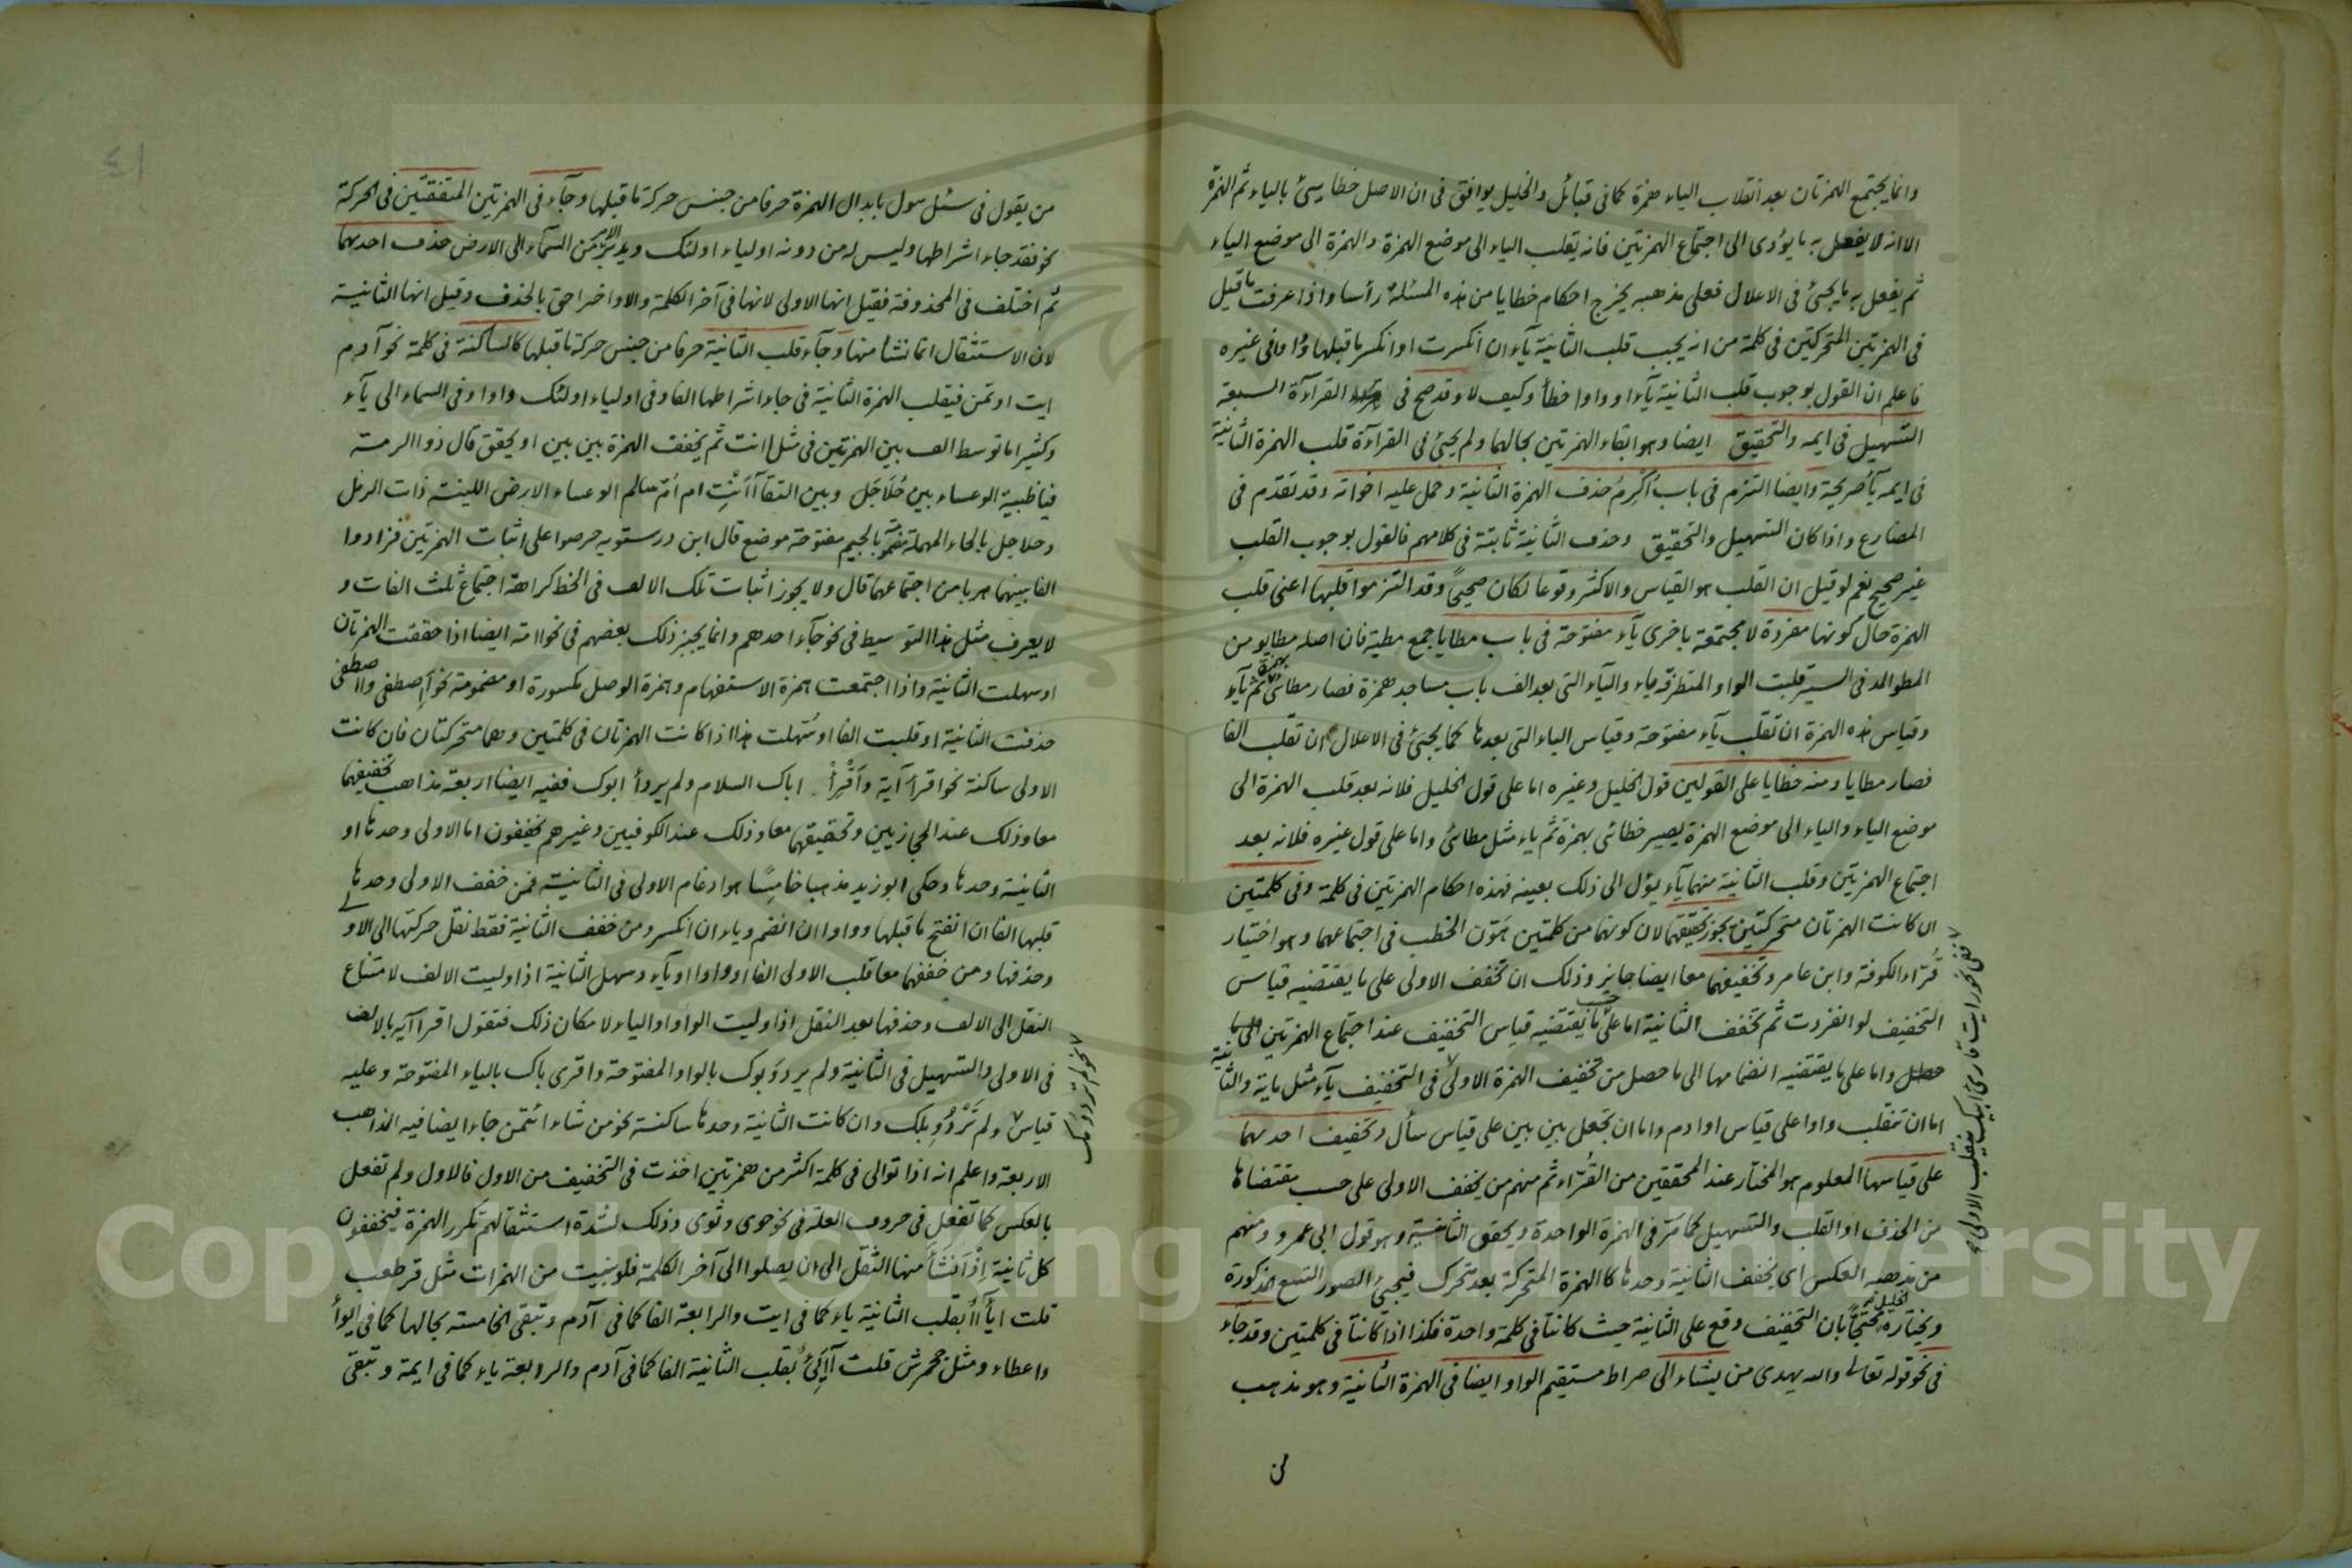 وانما يجتمع الهمزتان بعد انقلاب الياء همزة كما في قبائل والخليل يوافق في ان الاصل خطايئ بالياء ثم الهمزة
الا انه لا يفعل به ما يؤدى الى اجتماع الهمزتين فانه يقلب الياء الى موضع الهمزة والهمزة الى موضع الياء
ثم يفعل به ما يجيئ في الاعلال فعلى مذهبه يخرج احكام خطايا من هذه المسئلة رأسا واذا عرفت ما قيل
في الهمزتين المتحركتين في كلمة من انه يجب قلب الثانية ياء ان انكسرت او انكسر ما قبلها وواوا في غيره
فاعلم ان القول بوجوب قلب الثانية ياء او واوا خطأ وكيف لا وقد صح في القراءة السبعة
التسهيل في ايمه والتحقيق ايضا وهو ابقاء الهمزتين بحالهما ولم يجئ في القراءة قلب الهمزة الثانية
في ايمه ياء صريحة وايضا التزم في باب اكرم حذف الهمزة الثانية وحمل عليه اخواته وقد تقدم في
المضارع واذا كان التسهيل والتحقيق وحذف الثانية ثابتة في كلامهم فالقول بوجوب القلب
غير صحيح نعم لو قيل ان القلب هو القياس والاكثر وقوعا لكان صحيحا وقد التزموا قلبها اعنى قلب
الهمزة حال كونها مفردة لا مجتمعة باخرى ياء مفتوحة في باب مطايا جمع مطية فان اصله مطايو من
المطو المد في السير قلبت الواو المتطرفة ياء والياء التى بعد الف باب مساجد همزة فصار مطائى بهمزة ثم ياء
وقياس هذه الهمزة ان تقلب ياء مفتوحة وقياس الياء التى بعدها كما يجيئ في الاعلال ان تقلب الفا
فصار مطايا ومنه خطايا على القولين قول الخليل وغيره اما على قول الخليل فلانه بعد قلب الهمزة الى
موضع الياء والياء الى موضع الهمزة يصير خطائى بهمزة ثم ياء مثل مطائى واما على قول غيره فلانه بعد
اجتماع الهمزتين وقلب الثانية منهما ياء يؤل الى ذلك بعينه فهذه احكام الهمزتين في كلمة وفي كلمتين
ان كانت الهمزتان متحركتين يجوز تحقيقهما لان كونهما من كلمتين هون الخطب في اجتماعهما وهو اختيار
قراء الكوفة وابن عامر وتخفيفهما معا ايضا جايز وذلك ان تخفف الاولى على ما يقتضيه قياس
التخفيف لو انفردت ثم تخفف الثانية اما على حسب ما يقتضيه قياس التخفيف عند اجتماع الهمزتين
واما على ما يقتضيه انضمامها الى ما حصل من تخفيف الهمزة الاولى في التخفيف ياء مثل ماية والثانية
اما ان تنقلب واوا على قياس اوادم واما ان تجعل بين بين على قياس سأل وتخفيف احديهما
على قياسها المعلوم هو المختار عند المحققين من القراء ثم منهم من يخفف الاولى على حسب مقتضاها
من الحذف او القلب والتسهيل كما مر في الهمزة الواحدة ويحقق الثانية وهو قول ابى عمرو ومنهم
من مذهبه العكس اى يخفف الثانية وحدها كالهمزة المتحركة بعد تحرك فيجئ الصور التسع المذكورة
ويختاره الخليل محتجا بان التخفيف وقع على الثانية حيث كانتا في كلمة واحدة فكذا اذا كانتا في كلمتين وقد جاء
في نحو قوله تعالى والله يهدى من يشاء الى صراط مستقيم الواو ايضا في الهمزة الثانية وهو مذهب
من
من يقول في سئل سول بابدال الهمزة حرفا من جنس حركة ما قبلها وجاء في الهمزتين المتفقتين في الحركة
نحو فقد جاء اشراطها وليس له من دونه اولياء اولئك ويدبر الامر من السماء الى الارض حذف احديهما
ثم اختلف في المحذوفة فقيل انها الاولى لانها في آخر الكلمة والاواخر احق بالحذف وقيل انها الثانية
لان الاستثقال انما نشأ منها وجاء قلب الثانية حرفا من جنس حركة ما قبلها كالساكنة في كلمة نحو آدم
ايت اوتمن فيقلب الهمزة الثانية في جاء اشراطها الفا وفي اولياء اولئك واوا وفي السماء الى ياء
وكثيرا ما توسط الف بين الهمزتين في مثل اانت ثم يخفف الهمزة بين بين او يحقق قال ذو الرمة
فيا ظبية الوعساء بين حلاجل وبين النقا آأنت ام ام سالم الوعساء الارض اللينة ذات الرمل
وحلاجل بالحاء المهملة مضمومة بالجيم مفتوحة موضع قال ابن درستويه حرصوا على اثبات الهمزتين فزادوا
الفا بينهما هربا من اجتماعهما قال ولا يجوز اثبات تلك الالف في الخط كراهة اجتماع ثلث الفات و
لا يعرف مثل هذا التوسيط في نحو جاء احدهم وانما يجيز ذلك بعضهم في نحو اامة ايضا اذا حققت الهمزتان
او سهلت الثانية واذا اجتمعت همزة الاستفهام وهمزة الوصل مكسورة او مضمومة نحو آاصطفى وااصطفى
حذفت الثانية او قلبت الفا او سهلت هذا اذا كانت الهمزتان في كلمتين وهما متحركتان فان كانت
الاولى ساكنة نحو اقرأ آية وأقرئ اباك السلام ولم يردأ ابوك ففيه ايضا اربعة مذاهب تخفيفهما
معا وذلك عند الحجازيين وتحقيقهما معا وذلك عند الكوفيين وغيرهم يخففون اما الاولى وحدها او
الثانية وحدها وحكى ابو زيد مذهبا خامسا هو ادغام الاولى في الثانية فمن خفف الاولى وحدها
قلبها الفا ان انفتح ما قبلها وواوا ان انضم وياء ان انكسر ومن خفف الثانية فقط نقل حركتها الى الاولى
وحذفها ومن خففهما معا قلب الاولى الفا او واوا او ياء وسهل الثانية اذا وليت الالف لامتناع
النقل الى الالف وحذفها بعد النقل اذا وليت الواو او الياء لامكان ذلك فتقول اقرا آية بالالف
في الاولى والتسهيل في الثانية ولم يردو بوك بالواو المفتوحة واقرى باك بالياء المفتوحة وعليه
قياس ولم تردو بلك وان كانت الثانية وحدها ساكنة نحو من شاء ائتمن جاء ايضا فيه المذاهب
الاربعة واعلم انه اذا توالى في كلمة اكثر من همزتين اخذت في التخفيف من الاول فالاول ولم تفعل
بالعكس كما تفعل في حروف العلة في نحو حوى وثوى وذلك لشدة استثقالهم تكرر الهمزة فيخففون
كل ثانية اذا نشأ منها الثقل الى ان يصلوا الى آخر الكلمة فلو بنيت من الهمزات مثل قرطعب
قلت ايأاأ بقلب الثانية ياء كما في ايت والرابعة الفا كما في آدم وتبقى الخامسة بحالها كما في ايوأ
واعطاء ومثل جحمرش قلت آايئ بقلب الثانية الفا كما في آدم والرابعة ياء كما في ايمة وتبقى
Copyright © King Saud University